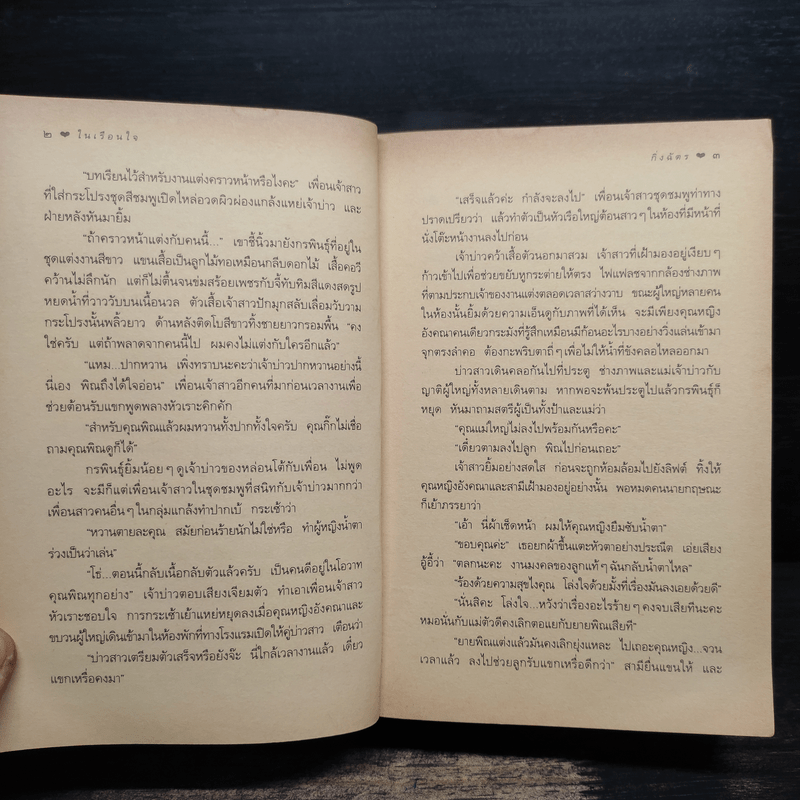 ๒ ❤ ในเรือนใจ
"บทเรียนไว้สำหรับงานแต่งคราวหน้าหรือไงคะ" เพื่อนเจ้าสาว
ที่ใส่กระโปรงชุดสีชมพูเปิดไหล่อวดผิวผ่องแกล้งแหย่เจ้าบ่าว และ
ฝ่ายหลังหันมายิ้ม
"ถ้าคราวหน้าแต่งกับคนนี้..." เขาชี้นิ้วมายังกรพินธุ์ที่อยู่ใน
ชุดแต่งงานสีขาว แขนเสื้อเป็นลูกไม้ทอเหมือนกลีบดอกไม้ เสื้อคอวี
คว้านไม่ลึกนัก แต่ก็ไม่ตื้นจนข่มสร้อยเพชรกับจี้ทับทิมสีแดงสดรูป
หยดน้ำที่วาววับบนเนื้อนวล ตัวเสื้อเจ้าสาวปักมุกสลับเลื่อมวับวาม
กระโปรงนั้นพลิ้วยาว ด้านหลังติดโบสีขาวทิ้งชายยาวกรอมพื้น "คง
ใช่ครับ แต่ถ้าพลาดจากคนนี้ไป ผมคงไม่แต่งกับใครอีกแล้ว"
"แหม...ปากหวาน เพิ่งทราบนะคะว่าเจ้าบ่าวปากหวานอย่างนี้
นี่เอง พิณถึงได้ใจอ่อน" เพื่อนเจ้าสาวอีกคนที่มาก่อนเวลางานเพื่อ
ช่วยต้อนรับแขกพูดพลางหัวเราะคิกคัก
"สำหรับคุณพิณแล้วผมหวานทั้งปากทั้งใจครับ คุณกิ๊กไม่เชื่อ
ถามคุณพิณดูก็ได้"
กรพินธุ์ยิ้มน้อยๆ ดูเจ้าบ่าวของหล่อนโต้กับเพื่อน ไม่พูด
อะไร จะมีก็แต่เพื่อนเจ้าสาวในชุดชมพูที่สนิทกับเจ้าบ่าวมากกว่า
เพื่อนสาวคนอื่นๆ ในกลุ่มแกล้งทำปากเบ้ กระเซ้าว่า
"หวานตายละคุณ สมัยก่อนร้ายนักไม่ใช่หรือ ทำผู้หญิงน้ำตา
ร่วงเป็นว่าเล่น"
"โธ่...ตอนนี้กลับเนื้อกลับตัวแล้วครับ เป็นคนดีอยู่ในโอวาท
คุณพิณทุกอย่าง" เจ้าบ่าวตอบเสียงเจียมตัว ทำเอาเพื่อนเจ้าสาว
หัวเราะชอบใจ การกระเซ้าเย้าแหย่หยุดลงเมื่อคุณหญิงอังคณาและ
ขบวนผู้ใหญ่เดินเข้ามาในห้องพักที่ทางโรงแรมเปิดให้คู่บ่าวสาว เตือนว่า
"บ่าวสาวเตรียมตัวเสร็จหรือยังจ๊ะ นี่ใกล้เวลางานแล้ว เดี๋ยว
แขกเหรื่อคงมา"
กิ่งฉัตร ❤ ๓
"เสร็จแล้วค่ะ กำลังจะลงไป" เพื่อนเจ้าสาวชุดชมพูท่าทาง
ปราดเปรียวว่า แล้วทำตัวเป็นหัวเรือใหญ่ต้อนสาวๆ ในห้องที่มีหน้าที่
นั่งโต๊ะหน้างานลงไปก่อน
เจ้าบ่าวคว้าเสื้อตัวนอกมาสวม เจ้าสาวที่เฝ้ามองอยู่เงียบๆ
ก้าวเข้าไปเพื่อช่วยขยับหูกระต่ายให้ตรง ไฟแฟลชจากกล้องช่างภาพ
ที่ตามประกบเจ้าของงานแต่งตลอดเวลาสว่างวาบ ขณะผู้ใหญ่หลายคน
ในห้องนั้นยิ้มด้วยความเอ็นดูกับภาพที่ได้เห็น จะมีเพียงคุณหญิง
อังคณาคนเดียวกระมังที่รู้สึกเหมือนมีก้อนอะไรบางอย่างวิ่งแล่นเข้ามา
จุกตรงลำคอ ต้องกะพริบตาถี่ๆ เพื่อไม่ให้น้ำที่ขังคลอไหลออกมา
บ่าวสาวเดินคลอกันไปที่ประตู ช่างภาพและแม่เจ้าบ่าวกับ
ญาติผู้ใหญ่ทั้งหลายเดินตาม หากพอจะพ้นประตูไปแล้วกรพินธุ์ก็
หยุด หันมาถามสตรีผู้เป็นทั้งป้าและแม่ว่า
"คุณแม่ใหญ่ไม่ลงไปพร้อมกันหรือคะ"
"เดี๋ยวตามลงไปลูก พิณไปก่อนเถอะ"
เจ้าสาวยิ้มอย่างสดใส ก่อนจะถูกห้อมล้อมไปยังลิฟต์ ทิ้งให้
คุณหญิงอังคณาและสามีเฝ้ามองอยู่อย่างนั้น พอหมดคนนายกฤษณะ
ก็เย้าภรรยาว่า
"เอ้า นี่ผ้าเช็ดหน้า ผมให้คุณหญิงยืมซับน้ำตา"
"ขอบคุณค่ะ" เธอยกผ้าขึ้นแตะหัวตาอย่างประณีต เอ่ยเสียง
อู้อี้ว่า "ตลกนะคะ งานมงคลของลูกแท้ๆ ฉันกลับน้ำตาไหล"
"ร้องด้วยความสุขไงคุณ โล่งใจด้วยมั้งที่เรื่องมันลงเอยด้วยดี"
"นั่นสิคะ โล่งใจ...หวังว่าเรื่องอะไรร้ายๆ คงจบเสียทีนะคะ
หมอนั่นกับแม่ตัวดีคงเลิกตอแยกับยายพิณเสียที"
"ยายพิณแต่งแล้วมันคงเลิกยุ่งแหละ ไปเถอะคุณหญิง...จวน
เวลาแล้ว ลงไปช่วยลูกรับแขกเหรื่อดีกว่า" สามียื่นแขนให้ และ